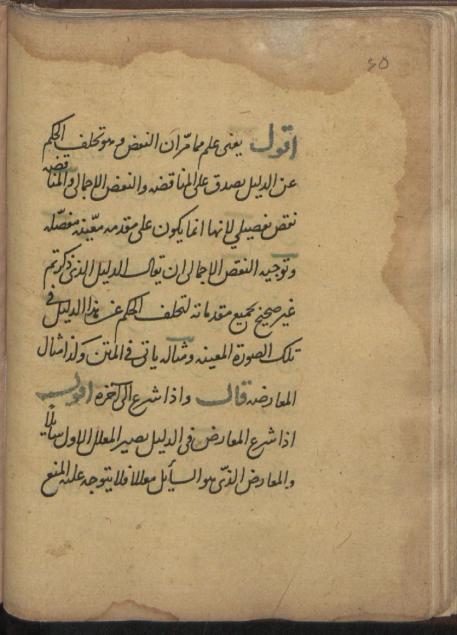 ٤٥
اقول يعنى علم مما مرّ ان النقض وهو تخلف الحكم
عن الدليل يصدق على المناقضه والنقض الاجمالى والمناقضه
نقض تفصيلي لانها انما يكون على مقدمه معيّنه مفصّله
وتوجيه النقض الاجمالى ان يقال الدليل الذى ذكرتم
غير صحيح بجميع مقدماته لتخلف الحكم عن هذا الدليل فى
تلك الصورة المعينه ومثاله ياتى فى المتن وكذا مثال
المعارضه قال واذا شرع الى آخره اقول
اذا شرع المعارض فى الدليل يصير المعلل الاول سايلاً
والمعارض الذى هو السايل معللا فلا يتوجه عليه المنع